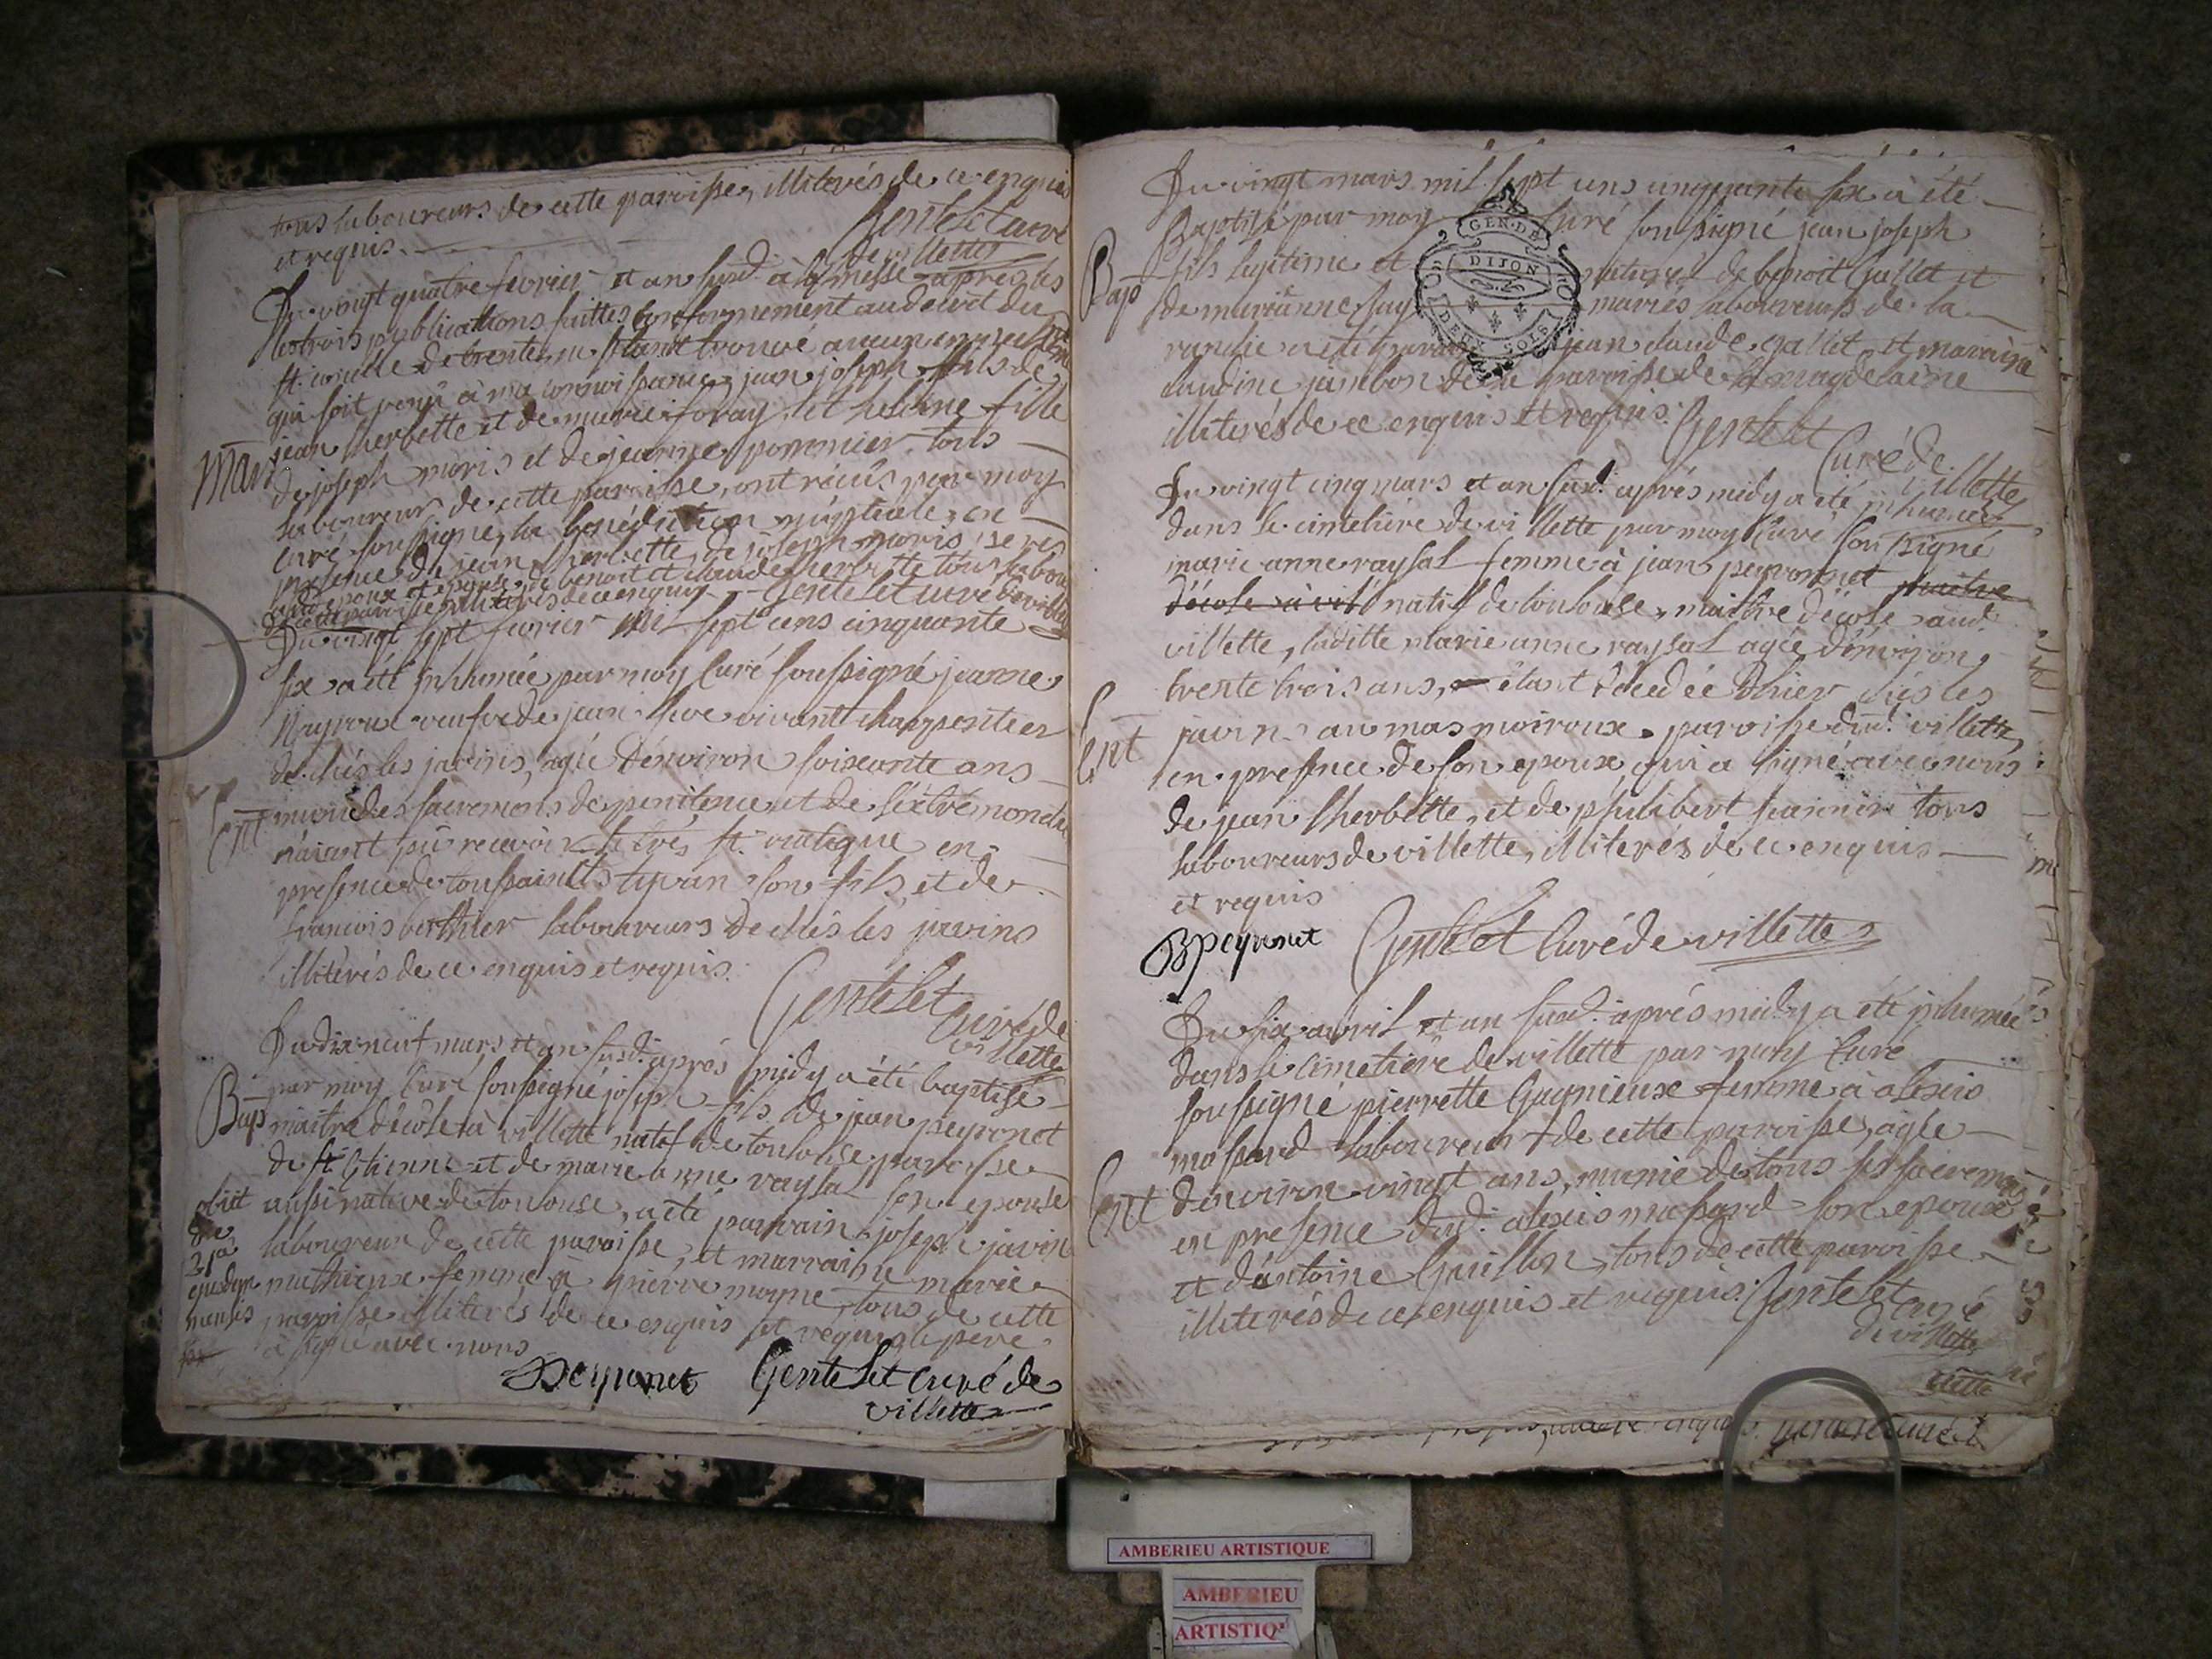 tous laboureurs de cette paroisse, illiterés de ce enquis
et requis. Gentelet curé
de villette
Du vingt quatre fevrier et an susd. à la messe après les
les trois publications faittes conformement au decret du
st. concile de trente ne s'etant trouvé aucun empechement
qui soit venu à ma connoissance, jean joseph fils de
jean lherbette et de marie foray et helaine fille
Mar
de joseph moris et de jeanne pommier tous
laboureurs de cette paroisse, ont reçus par moy
curé soussigné, la benédiction nuptiale, en
presence de jean lherbette, de joseph moris, peres
de benoit et claude lherbette tous labou
illiterés de ce enquis Gentelet curé de villette
Du vingt sept fevrier mil sept cens cinquante
six a été inhumée par moy Curé soussigné jeanne
Mayroux veufve de jean vivant charpentier
de chés les javins, agée d'environ soixante ans
Ent
munie des sacremens de penitence et de l'extremonction
n'aiant pû recevoir le très st. viatique en
presence de toussaints tipvan son fils, et de
francois berthier laboureurs de chés les javins
illiterés de ce enquis et requis.
Gentelet
Curé de
villette
Du dix neuf mars et an susd. après midy a été baptisé
Bap
par moy Curé soussigné joseph fils de jean peyronet
maitre d'école à villette natif de toulouse paroisse
de st. Etienne et de marie anne raysal son epouse
obiit
aussi native de toulouse, a été parrain joseph javin
die
laboureur de cette paroisse, et marraine marie
2ja
mathieux femme à pierre moyne, tous de cette
ejusdem
mensis
paroisse illiterés de ce enquis et requis, le pere
a signé avec nous
Peyronet Gentelet Curé de
villette
Du vingt mars mil sept cens cinquante six a été
Baptisé par moy Curé soussigné jean joseph
Bap
fils legitime et naturel de benoit Gallet et
de marianne mariés laboureurs de la
GEN. DE
DIJON
DEUX SOLS
a été parrain jean claude gallet et marraine
claudine jambon de la paroisse de la magdelaine
illiterés de ce enquis et requis. Gentelet
Curé de
villette
Du vingt cinq mars et an susd. après midy a été inhumée
dans le cimetière de villette par moy Curé soussigné
marie anne raysal femme à jean peyronnet maitre
d'école à vil natif de toulouse, maitre d'école aud.
villette, laditte marie anne raysal agée d'environ
trente trois ans, étant décedée d'hier chés les
Ent
javins au mas moiroux paroisse dud. villette,
en presence de son epoux, qui a signé avec nous
de jean lherbette, et de philibert jeannin tous
laboureurs de villette, illiterés de ce enquis
et requis
Peyronet Gentelet Curé de villette
Du six avril et an susd. après midy a été inhumée
dans le cimetière de villette par moy Curé
soussigné pierrette Gagnieux femme à alexis
massard laboureur de cette paroisse, agée
Ent
d'environ vingt ans, munie de tous ses sacremens
en presence dud. alexis massard son epoux
et d'antoine Guillon, tous de cette paroisse
illiterés de ce enquis et requis. Gentelet
curé
de villette
AMBERIEU ARTISTIQUE
AMBERIEU
ARTISTIQ